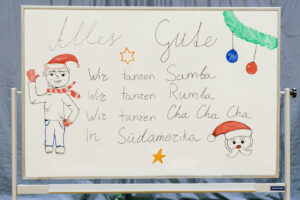 Alles Gute
Wir tanzen Samba
Wir tanzen Rumba
Wir tanzen Cha Cha Cha
In Südamerika